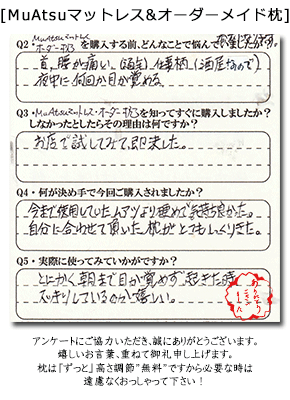 [MuAtsuマットレス&オーダーメイド枕]
Q2・MuAtsuマットレス・オーダー枕を購入する前、どんなことで悩んでいましたか?
首、腰が痛い。仕事柄、(酒屋なので)
夜中に何回か目が覚める。
Q3・MuAtsuマットレス・オーダー枕を知ってすぐに購入しましたか?
しなかったとしたらその理由は何ですか?
お店で試してみて即決した。
Q4・何が決め手で今回ご購入されましたか?
今まで使用していたムアツより硬めで気持良かった。
自分に合わせて頂いた枕がとてもしっくりきた。
Q5・実際に使ってみていかがですか?
とにかく朝まで目が覚めず起きた時
スッキリしているので嬉しい。
アンケートにご協力いただき、誠にありがとうございます。
嬉しいお言葉、重ねて御礼申し上げます。
枕は『ずっと』高さ調節"無料"ですから必要な時は
遠慮なくおっしゃって下さい!